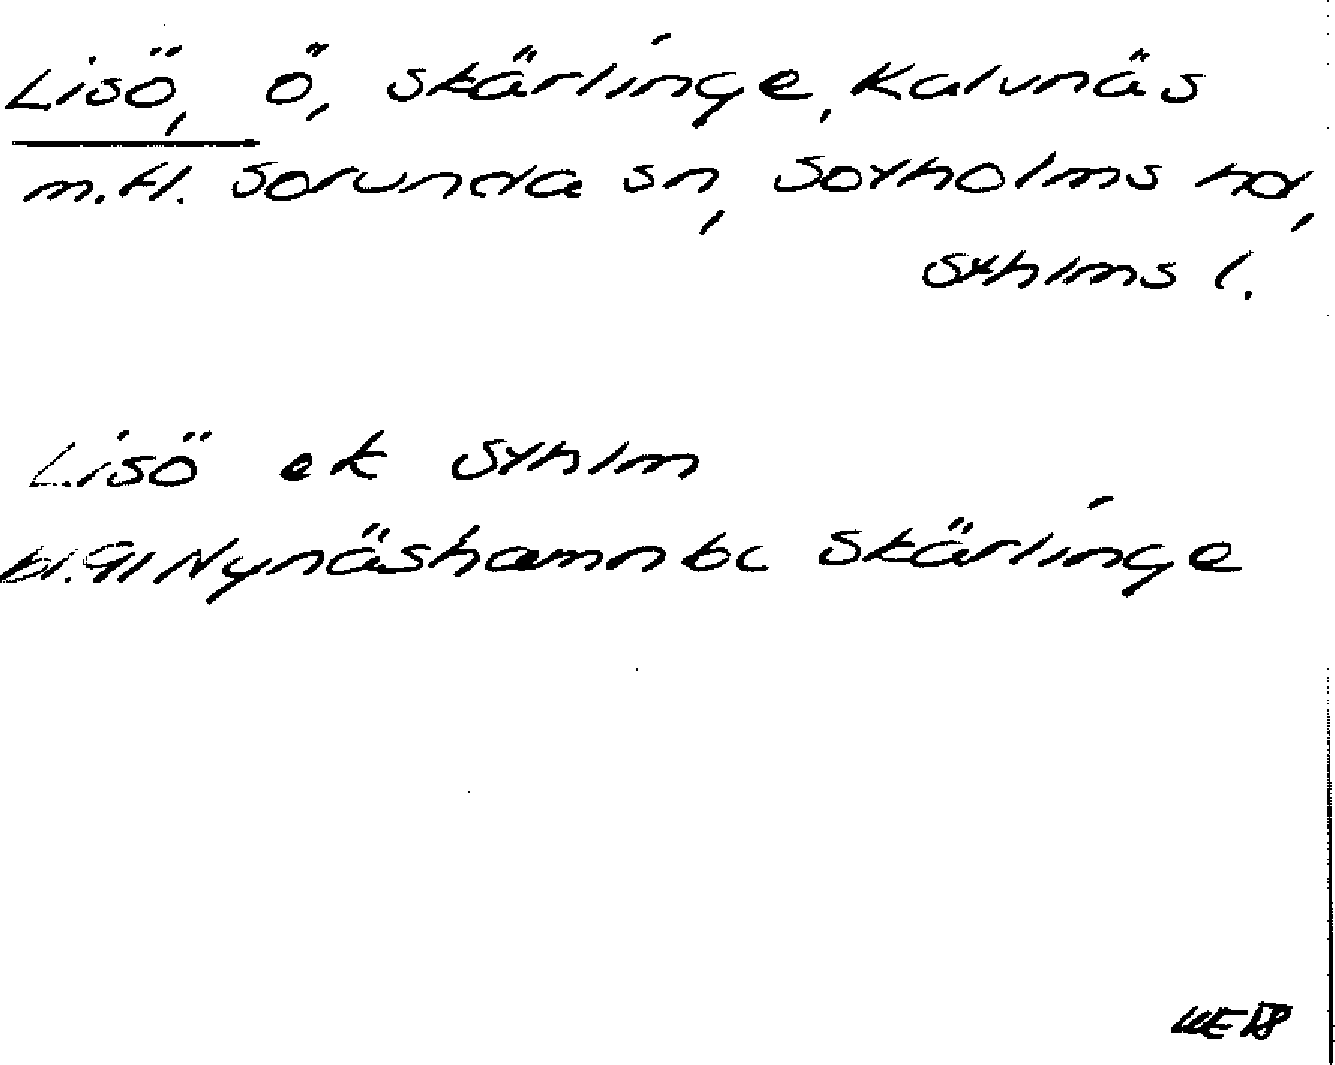 Lisö, ö, Skärlinge, Kalvnäs
m.fl. Sorunda sn, Sotholms hd,
Sthlms l.
Lisö ek Sthlm
bl. 91 Nynäshamn bc Skärlinge